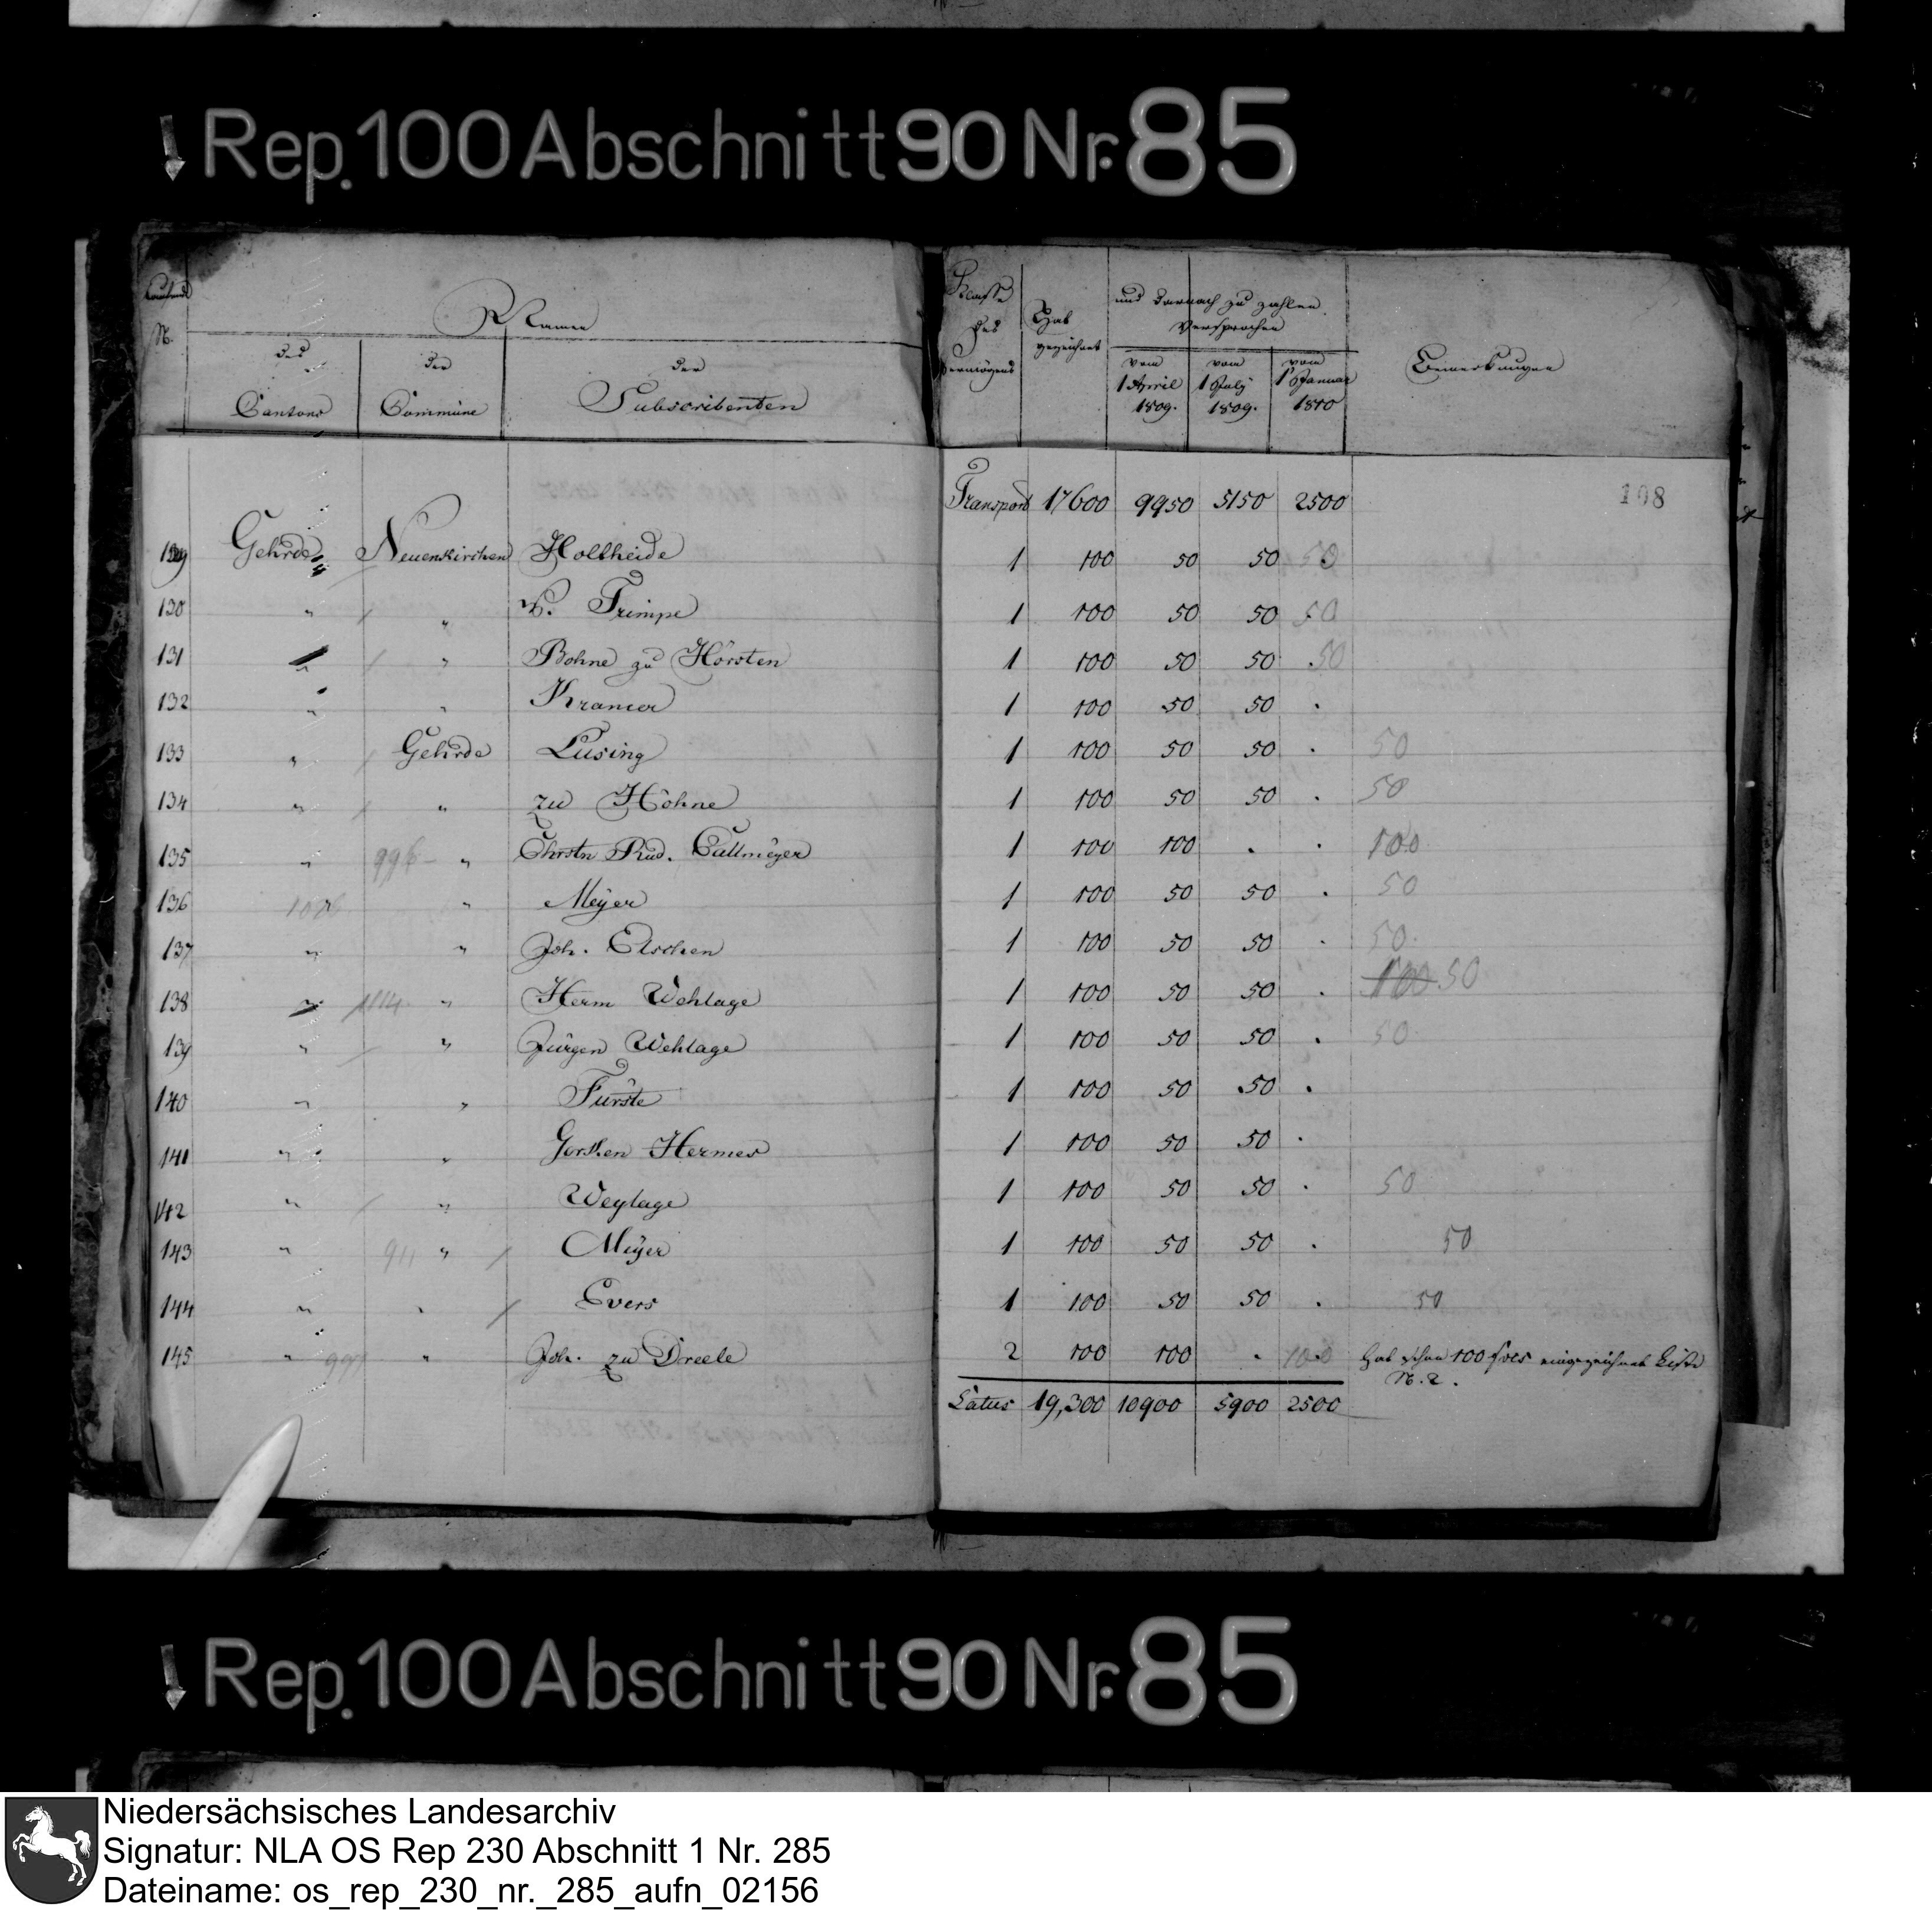 Rep. 100 Abschnitt 90 Nr. 85
Laufende Namen Klasse Hat und darnach zu zahlen
N. des gezeichnet versprochen Bemerkungen
des der der Vermögens vom vom vom
Cantons Commüne Subscribenten 1 April 1 July 1 Januar
1809. 1809. 1810
Transport 17600 9950 5150 2500 108
129 Gehrde Neuenkirchen Holtheide 1 100 50 50 50
130 " " Trimpe 1 100 50 50 50
131 " " Bohne zu Hörsten 1 100 50 50 50
132 " " Kramer 1 100 50 50 .
133 " Gehrde Lüsing 1 100 50 50 . 50
134 " " zu Höhne 1 100 50 50 . 50
135 " 996 " Chrstn Rud. Callmeyer 1 100 100 . . 100
136 " Meÿer 1 100 50 50 . 50
137 " " Joh. Elschen 1 100 50 50 . 50
138 " 1114 " Herm Wehlage 1 100 50 50 . 100 50
139 " " Jürgen Wehlage 1 100 50 50 . 50
140 " " Fürste 1 100 50 50 .
141 " " Hermes 1 100 50 50 .
142 " " Weylage 1 100 50 50 . 50
143 " 911 " Meÿer 1 100 50 50 . 50
144 " " Evers 1 100 50 50 . 50
145 " 997 " Joh. zu Dreele 2 100 100 . 100 hat schon 100 frcs eingezeichnet Liste
N. 2.
Latus 19,300 10900 5900 2500
Rep. 100 Abschnitt 90 Nr. 85
Niedersächsisches Landesarchiv
Signatur: NLA OS Rep 230 Abschnitt 1 Nr. 285
Dateiname: os_rep_230_nr._285_aufn_02156